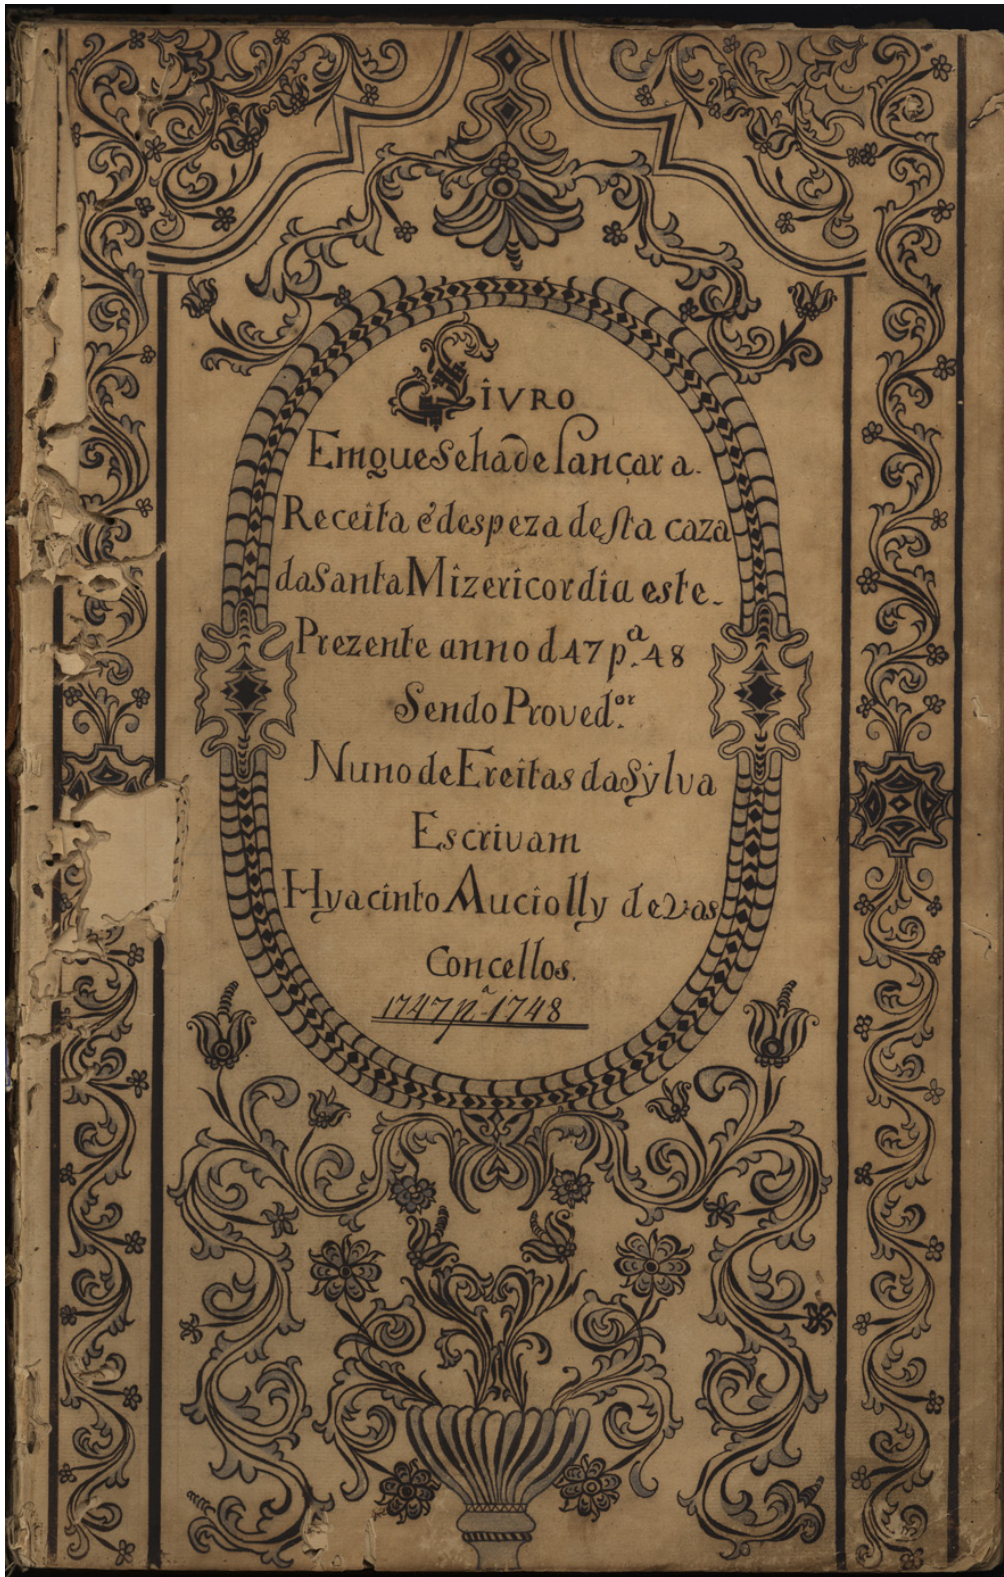 Livro
Em que Se ha de lançar a.
Receita é despeza desta caza
da Santa Mizericordia este.
Prezente anno d 47 p.ª 48
Sendo Proved.or
Nuno de Freitas da Sylva
Escrivam
Hyacinto Auciolly de Vas
Concellos.
1747 p.ª 1748